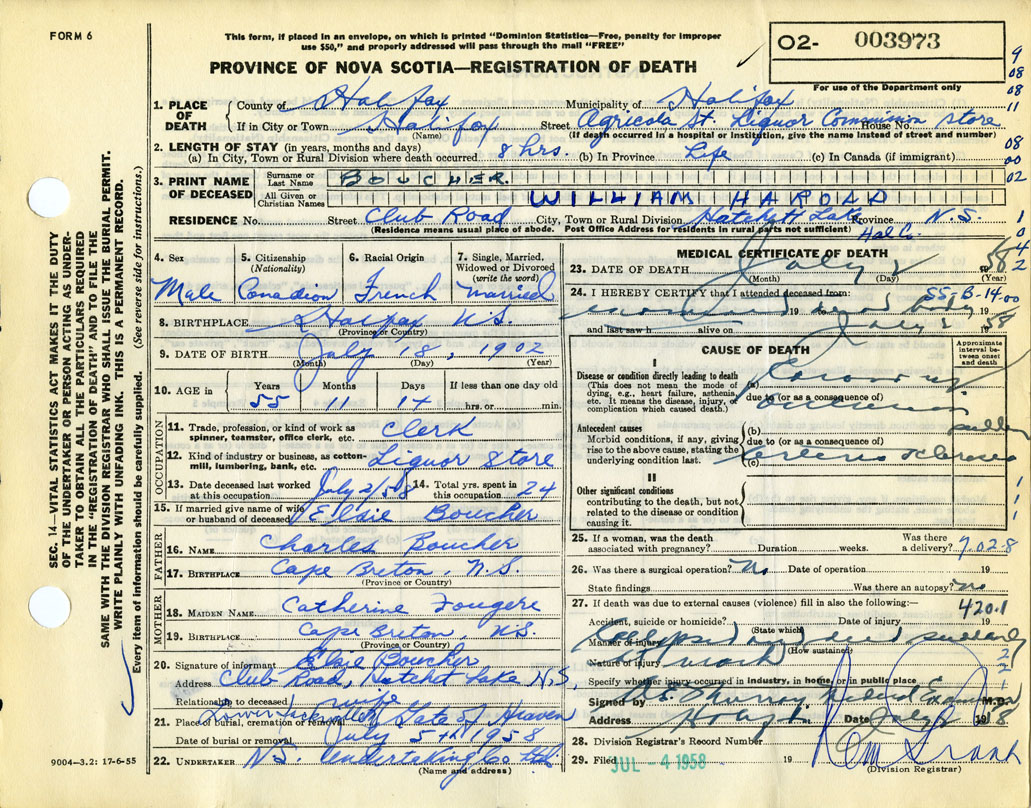 FORM 6
This form, if placed in an envelope, on which is printed "Dominion Statistics—Free, penalty for improper
use $50," and properly addressed will pass through the mail "FREE"
PROVINCE OF NOVA SCOTIA—REGISTRATION OF DEATH
O2- 003973
For use of the Department only
9
08
08
11
08
00
02
1
0
4
2
1. PLACE OF DEATH County of Halifax Municipality of Halifax
If in City or Town Halifax Street Agricola St. Liquor Commission House No. store
(Name) (If death occurred in a hospital or institution, give the name instead of street and number)
2. LENGTH OF STAY (in years, months and days)
(a) In City, Town or Rural Division where death occurred 8 hrs. (b) In Province Life (c) In Canada (if immigrant)
3. PRINT NAME OF DECEASED Surname or Last Name BOUCHER
All Given or Christian Names WILLIAM HAROLD
RESIDENCE No. Street Club Road City, Town or Rural Division Hatchet Lake Province N.S.
(Residence means usual place of abode. Post Office Address for residents in rural parts not sufficient) Hal Co.
SEC. 14—VITAL STATISTICS ACT MAKES IT THE DUTY
OF THE UNDERTAKER OR PERSON ACTING AS UNDER-
TAKER TO OBTAIN ALL THE PARTICULARS REQUIRED
IN THE "REGISTRATION OF DEATH" AND TO FILE THE
SAME WITH THE DIVISION REGISTRAR WHO SHALL ISSUE THE BURIAL PERMIT.
WRITE PLAINLY WITH UNFADING INK. THIS IS A PERMANENT RECORD.
Every item of information should be carefully supplied. (See reverse side for instructions.)
4. Sex 5. Citizenship (Nationality) 6. Racial Origin 7. Single, Married, Widowed or Divorced (write the word)
Male Canadian French Married
8. BIRTHPLACE Halifax N.S.
(Province or Country)
9. DATE OF BIRTH July 18, 1902
(Month) (Day) (Year)
10. AGE in Years Months Days If less than one day old
55 11 14 hrs. or min.
OCCUPATION
11. Trade, profession, or kind of work as spinner, teamster, office clerk, etc. Clerk
12. Kind of industry or business, as cotton-mill, lumbering, bank, etc. Liquor Store
13. Date deceased last worked at this occupation July 2/58 14. Total yrs. spent in this occupation 24
15. If married give name of wife or husband of deceased Elsie Boucher
FATHER
16. NAME Charles Boucher
17. BIRTHPLACE Cape Breton, N.S.
(Province or Country)
MOTHER
18. MAIDEN NAME Catherine Fougere
19. BIRTHPLACE Cape Breton, N.S.
(Province or Country)
20. Signature of informant Elsie Boucher
Address Club Road, Hatchet Lake N.S.
Relationship to deceased wife
21. Place of burial, cremation or removal Lower Sackville Gate of Heaven
Date of burial or removal July 5th 1958
22. UNDERTAKER N.S. Undertaking Co Ltd.
(Name and address)
9004—3.2: 17-6-55
MEDICAL CERTIFICATE OF DEATH
23. DATE OF DEATH July 2 1958
(Month) (Day) (Year)
24. I HEREBY CERTIFY that I attended deceased from: 55-B-14.00
19 dead body
and last saw h alive on July 2 1958
CAUSE OF DEATH
Approximate interval between onset and death
I
Disease or condition directly leading to death (a) Coronary
(This does not mean the mode of dying, e.g., heart failure, asthenia, etc. It means the disease, injury, or complication which caused death.)
due to (or as a consequence of) occlusion
Antecedent causes (b) sudden
Morbid conditions, if any, giving rise to the above cause, stating the underlying condition last.
due to (or as a consequence of)
(c) arterio sclerosis
II
Other significant conditions
contributing to the death, but not related to the disease or condition causing it.
1
1
1
25. If a woman, was the death associated with pregnancy? Duration weeks. Was there a delivery? 9.028
26. Was there a surgical operation? No Date of operation 19
State findings Was there an autopsy? no
27. If death was due to external causes (violence) fill in also the following:— 420.1
Accident, suicide or homicide? Date of injury 19
(State which)
Manner of injury collapsed and died suddenly
(How sustained)
Nature of injury at work
2
2
Specify whether injury occurred in industry, in home, or in public place
Signed by Murray Medical Examiner M.D.
Address Date July 1958
28. Division Registrar's Record Number
29. Filed JUL - 4 1958 19
(Division Registrar)